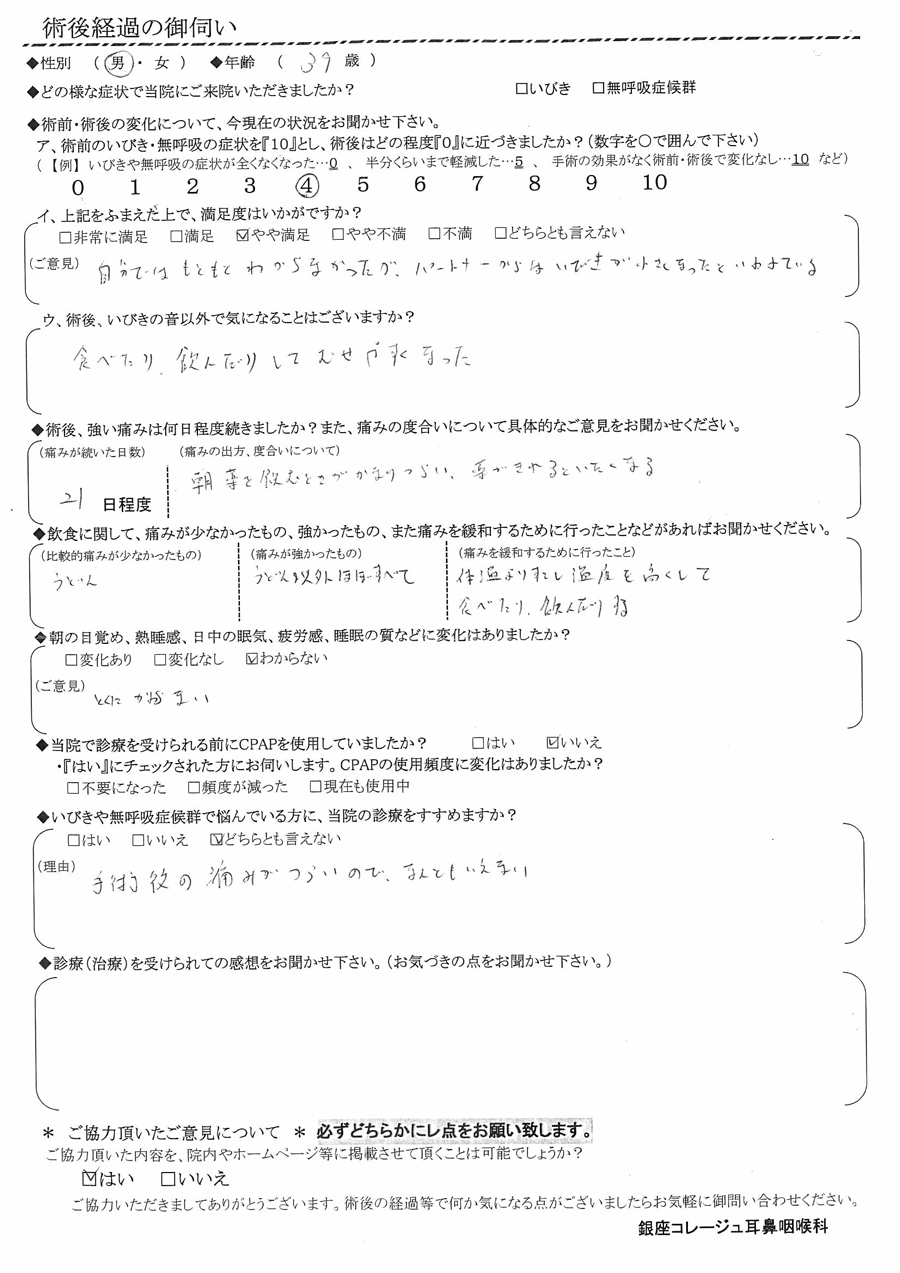 術後経過の御伺い
◆性別 （ 男 ・ 女 ） ◆年齢 （ 39 歳 ）
◆どの様な症状で当院にご来院いただきましたか？ □いびき □無呼吸症候群
◆術前・術後の変化について、今現在の状況をお聞かせ下さい。
ア、術前のいびき・無呼吸の症状を『10』とし、術後はどの程度『0』に近づきましたか？（数字を〇で囲んで下さい）
（【例】 いびきや無呼吸の症状が全くなくなった…0 、 半分くらいまで軽減した…5 、 手術の効果がなく術前・術後で変化なし…10 など）
0 1 2 3 ④ 5 6 7 8 9 10
イ、上記をふまえた上で、満足度はいかがですか？
□非常に満足 □満足 ☑やや満足 □やや不満 □不満 □どちらとも言えない
（ご意見） 自分ではもともとわからなかったが、パートナーからはいびきが小さくなったといわれている
ウ、術後、いびきの音以外で気になることはございますか？
食べたり、飲んだりしてむせやすくなった
◆術後、強い痛みは何日程度続きましたか？また、痛みの度合いについて具体的なご意見をお聞かせください。
（痛みが続いた日数） （痛みの出方、度合いについて）
21 日程度 朝薬を飲むときがかなりつらい、薬がきれるといたくなる
◆飲食に関して、痛みが少なかったもの、強かったもの、また痛みを緩和するために行ったことなどがあればお聞かせください。
（比較的痛みが少なかったもの） （痛みが強かったもの） （痛みを緩和するために行ったこと）
うどん うどん以外ほぼすべて 体温より少し温度を高くして
食べたり、飲んだりする
◆朝の目覚め、熟睡感、日中の眠気、疲労感、睡眠の質などに変化はありましたか？
□変化あり □変化なし ☑わからない
（ご意見） とくにかわらない
◆当院で診療を受けられる前にCPAPを使用していましたか？ □はい ☑いいえ
・『はい』にチェックされた方にお伺いします。CPAPの使用頻度に変化はありましたか？
□不要になった □頻度が減った □現在も使用中
◆いびきや無呼吸症候群で悩んでいる方に、当院の診療をすすめますか？
□はい □いいえ ☑どちらとも言えない
（理由） 手術後の痛みがつらいので、なんともいえない
◆診療（治療）を受けられての感想をお聞かせ下さい。（お気づきの点をお聞かせ下さい。）
＊ ご協力頂いたご意見について ＊ 必ずどちらかにレ点をお願い致します。
ご協力頂いた内容を、院内やホームページ等に掲載させて頂くことは可能でしょうか？
☑はい □いいえ
ご協力いただきましてありがとうございます。術後の経過等で何か気になる点がございましたらお気軽に御問い合わせください。
銀座コレージュ耳鼻咽喉科